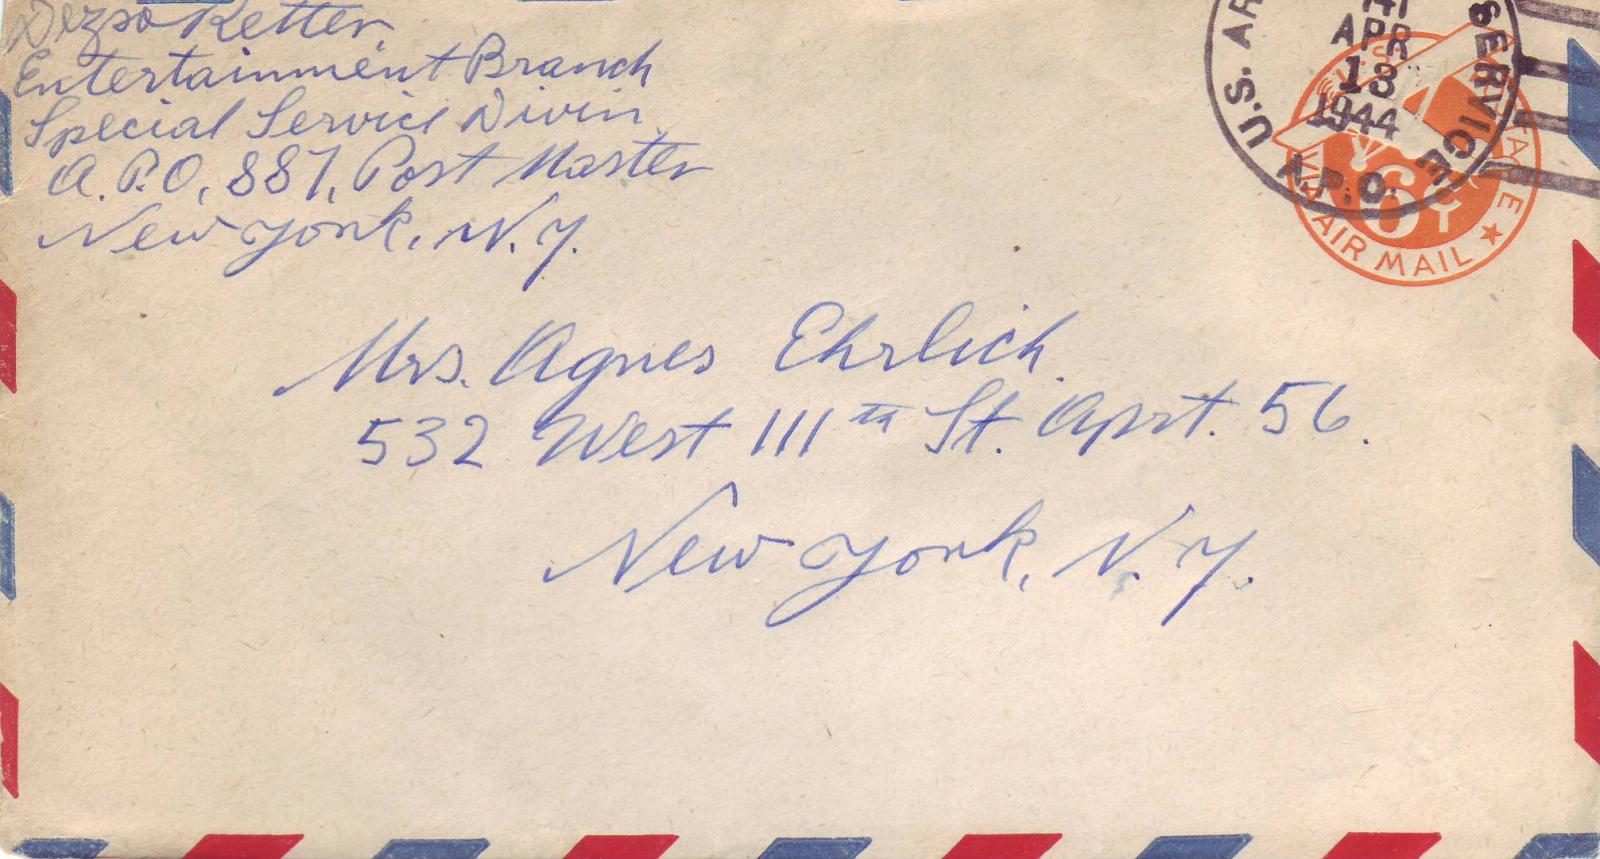 Dezso Retter
Entertainment Branch
Special Service Divin
A.P.O, 887, Post Master
New York, N.Y.
U.S. AR
SERVICE
A.P.O.
APR
13
1944
VIA AIR MAIL
6
Mrs. Agnes Ehrlich
532 West 111th St. Aprt. 56.
New York, N.Y.